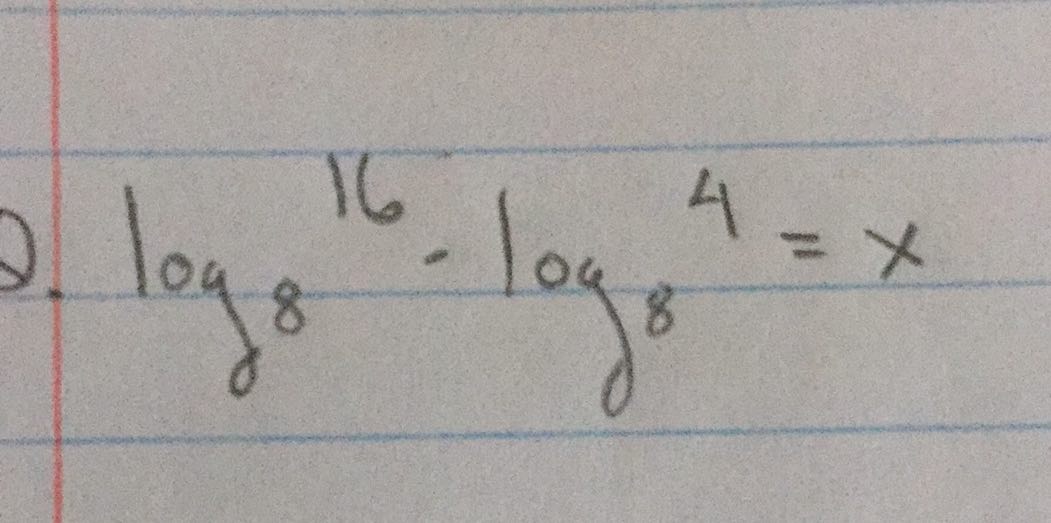 Q. log₈ 16 - log₈ 4 = x